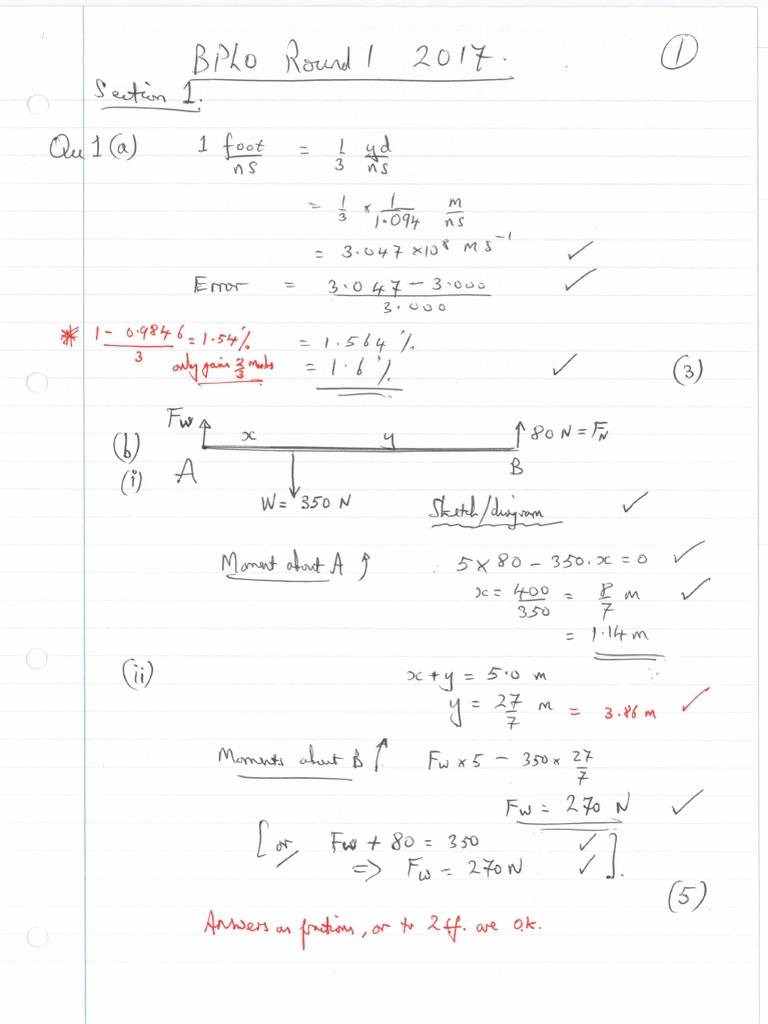 BPhO Round 1 2017.
1
Section 1.
Qu 1 (a) 1 foot/ns = 1/3 yd/ns
= 1/3 × 1/1.094 m/ns
= 3.047 × 10⁸ ms⁻¹ ✓
Error = (3.047 – 3.000)/3.000 ✓
* (1 – 0.9846)/3 = 1.54% = 1.564 %
only gains 2/3 marks = 1.6 % ✓ (3)
Fw x y 80 N = F_N
(b)
(i) A B
W = 350 N Sketch/diagram ✓
Moment about A 5 × 80 – 350.x = 0 ✓
x = 400/350 = 8/7 m ✓
= 1.14 m
(ii) x + y = 5.0 m
y = 27/7 m = 3.86 m ✓
Moments about B Fw × 5 – 350 × 27/7
Fw = 270 N ✓
[or, Fw + 80 = 350 ✓
=> Fw = 270 N ✓].
(5)
Answers as fractions, or to 2 sf. are O.K.